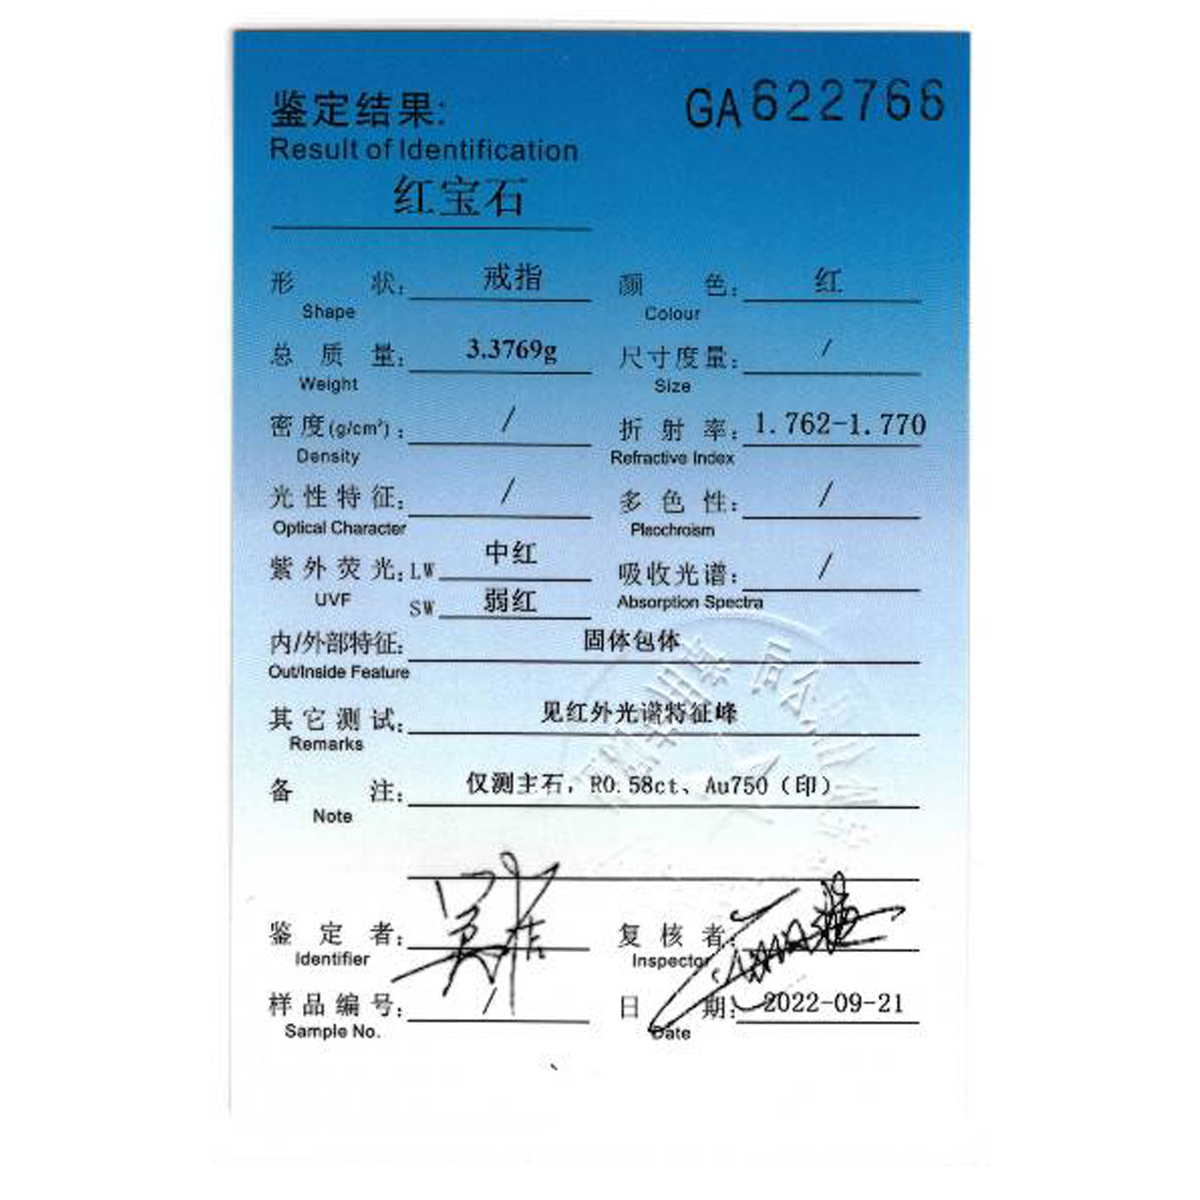 鉴定结果:
GA622766
Result of Identification
红宝石
形状: 戒指 颜色: 红
Shape Colour
总质量: 3.3769g 尺寸度量: /
Weight Size
密度(g/cm³): / 折射率: 1.762-1.770
Density Refractive Index
光性特征: / 多色性: /
Optical Character Pleochroism
紫外荧光: LW 中红 吸收光谱: /
UVF SW 弱红 Absorption Spectra
内/外部特征: 固体包体
Out/Inside Feature
其它测试: 见红外光谱特征峰
Remarks
备注: 仅测主石, R0.58ct、Au750(印)
Note
鉴定者: 复核者:
Identifier Inspector
样品编号: 日期: 2022-09-21
Sample No. Date